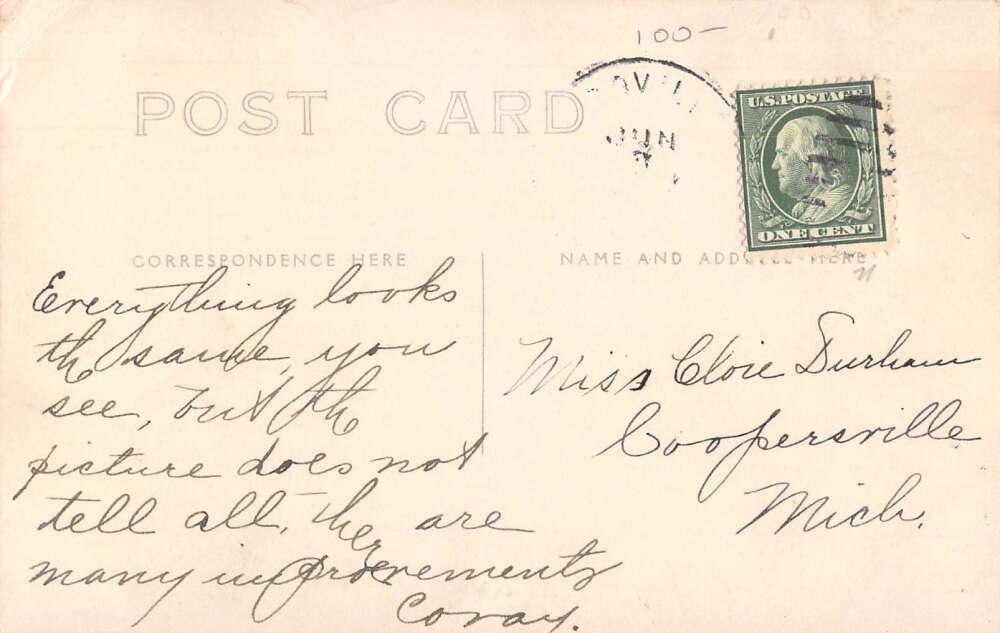 100-
POST CARD
OVILL
JUN
U.S. POSTAGE
ONE CENT
CORRESPONDENCE HERE
NAME AND ADDRESS HERE
Everything looks
the same, you
see, but the
picture does not
tell all. There are
many improvements
Coray.
Miss Cloie Durham
Coopersville
Mich.